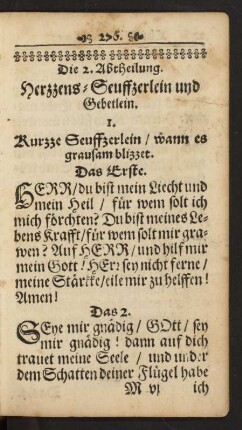 276.
Die 2. Abtheilung.
Hertzens-Seuffzerlein und
Gebetlein.
1.
Kurzze Seuffzerlein / wann es
grausam blizzet.
Das Erste.
HERR/du bist mein Liecht und
mein Heil / für wem solt ich
mich förchten? Du bist meines Le-
bens Krafft/für wem solt mir gra-
wen? Auf HERR/und hilf mir
mein Gott! HErr sey nicht ferne/
meine Stärcke/eile mir zu helffen!
Amen!
Das 2.
SEye mir gnädig / GOtt / sey
mir gnädig! dann auf dich
trauet meine Seele / und under
dem Schatten deiner Flügel habe
M vj ich